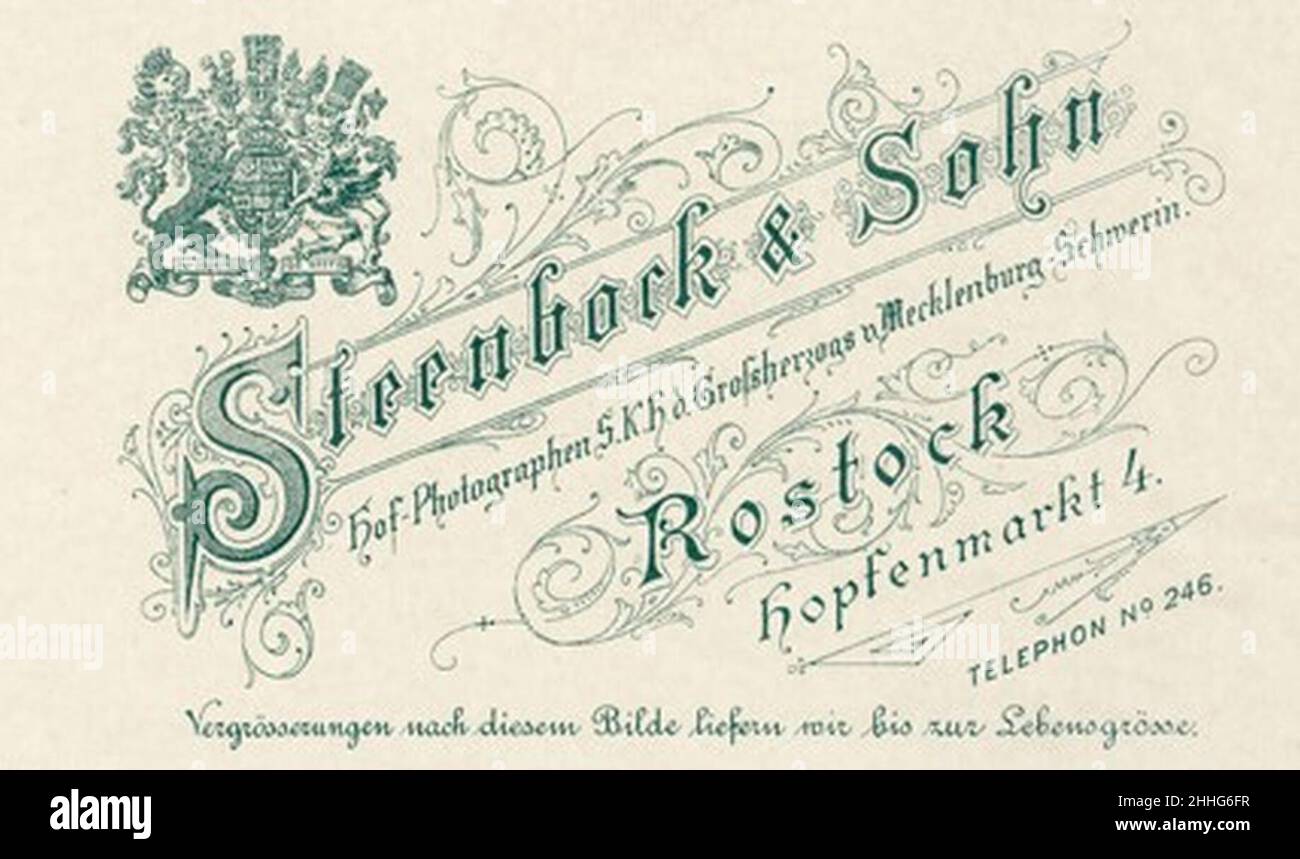 Steenbock & Sohn
Hof-Photographen S.K.H. d. Grofsherzogs v. Mecklenburg-Schwerin.
Rostock
Hopfenmarkt 4.
TELEPHON No 246.
Vergrösserungen nach diesem Bilde liefern wir bis zur Lebensgrösse.
alamy
Image ID: 2HHG6FR
www.alamy.com